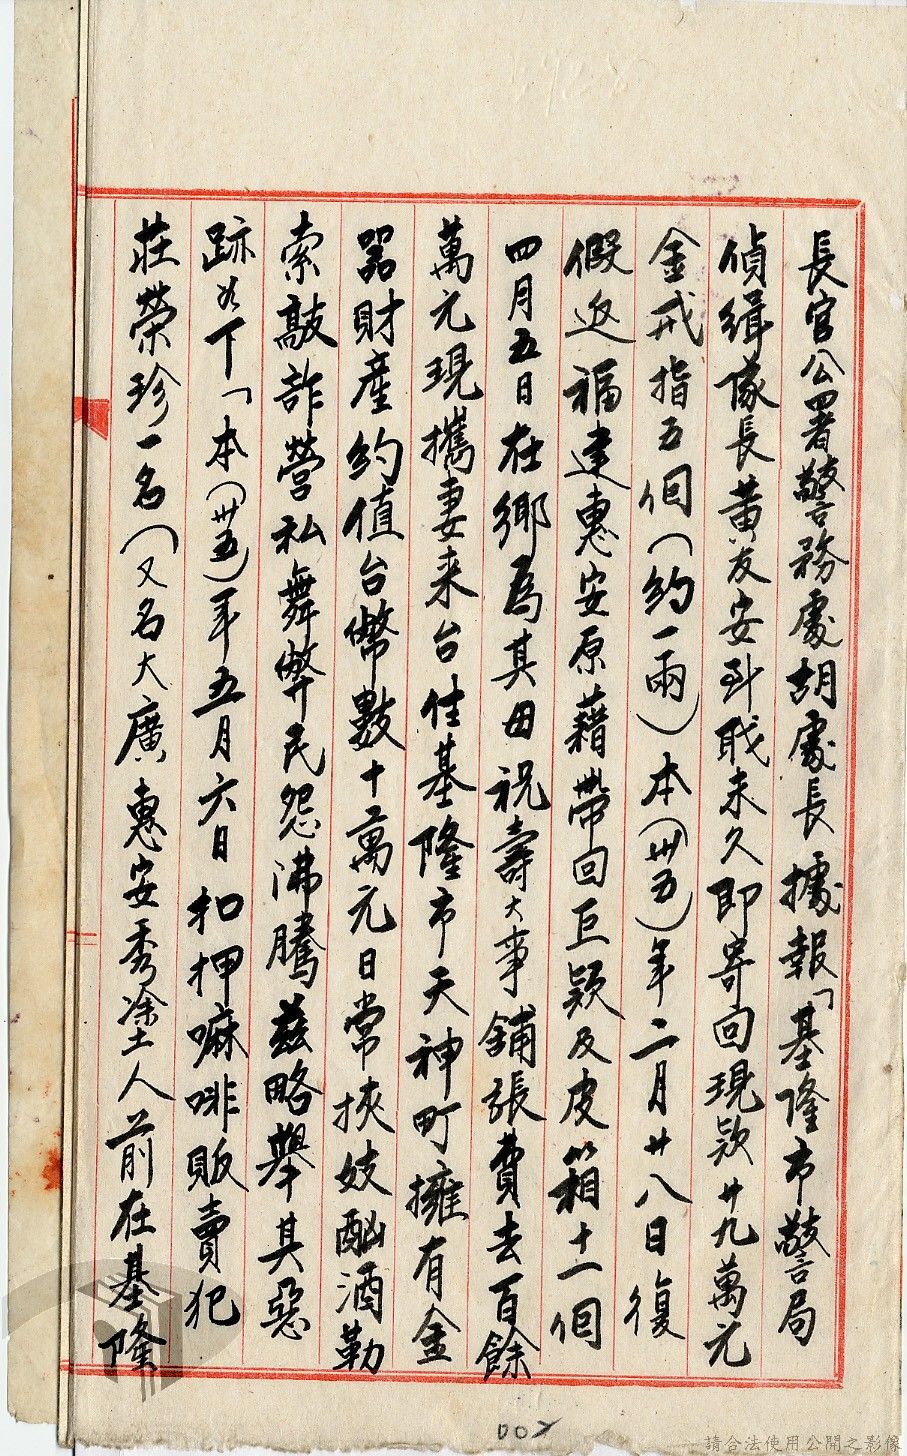 長官公署警務處胡處長據報「基隆市警局
偵緝隊長黃友安到職未久即寄回現款廿九萬元
金戒指五個(約一兩)本(卅五)年二月廿八日復
假返福建惠安原藉帶回巨款及皮箱十一個
四月五日在鄉為其母祝壽大事舖張費去百餘
萬元現攜妻来台住基隆市天神町擁有金
器財產約值台幣數十萬元日常挾妓酗酒勒
索敲詐營私舞弊民怨沸騰茲略舉其惡
跡如下「本(卅五)年五月六日扣押嗎啡販賣犯
莊榮珍一名(又名大廣惠安秀塗人前在基隆
002
請合法使用公開之影像